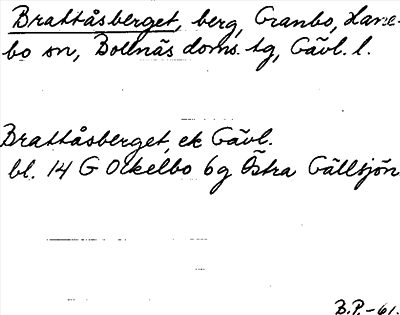 Brattåsberget, berg, Granbo, Hane-
bo sn, Bollnäs doms. tg, Gävl. l.
Brattåsberget, ek Gävl.
bl. 14 G Ockelbo 6g Östra Gällsjön
B.P.-61.